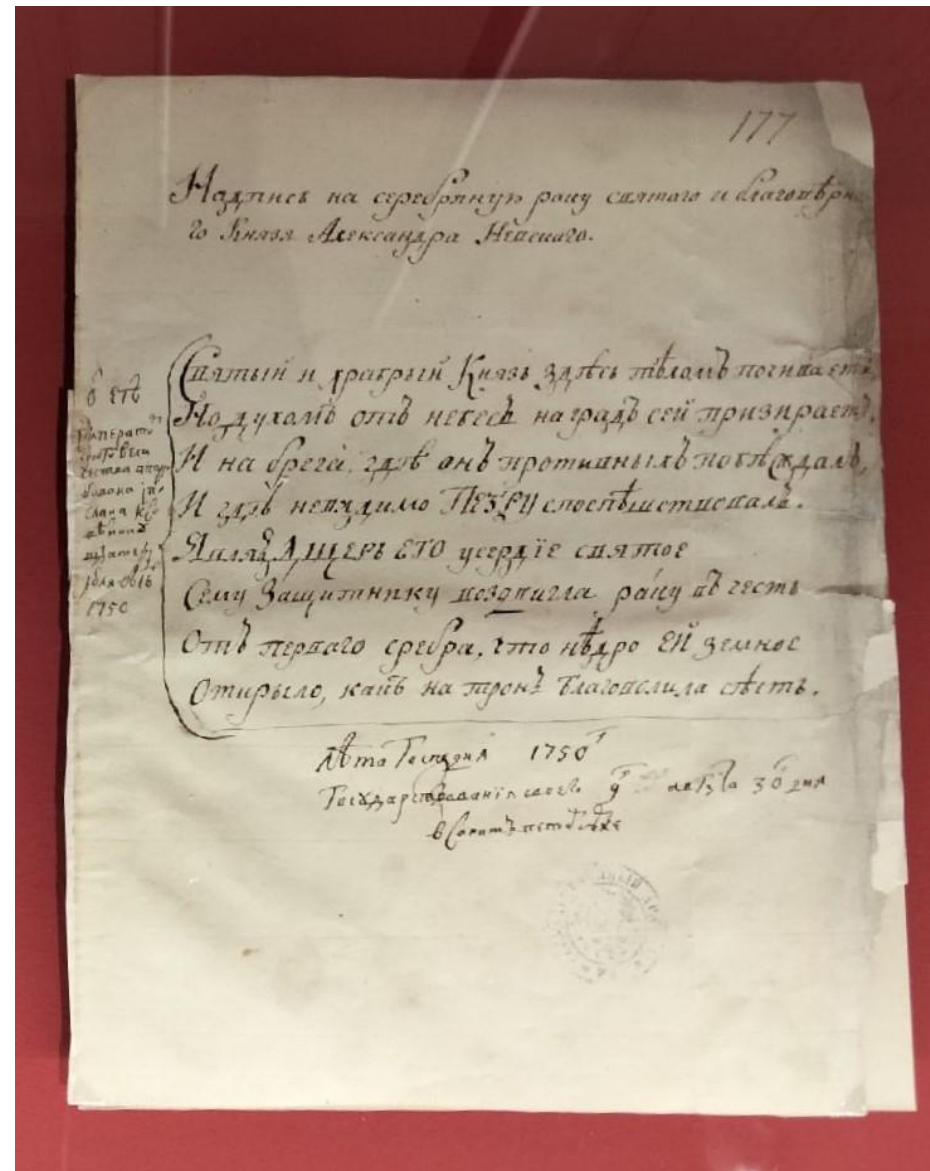 177
Надпись на серебряную раку святаго и благовѣрна
го Князя Александра Невскаго.
Святый и храбрый Князь здѣсь тѣломъ почиваетъ,
Но духомъ отъ небесъ на градъ сей призираетъ.
И на брега, гдѣ онъ противныхъ побѣждалъ,
И гдѣ невидимо ПЕТРУ споспѣшствовалъ.
Являя ДЩЕРЬ ЕГО усердіе святое
Сему Защитнику воздвигла раку въ честь
Отъ перваго сребра, что нѣдро ЕЙ земное
Открыло, какъ на тронъ благоволила сѣсть.
1750
лѣта Господня 1750
Государствованія своего 9 30 дня